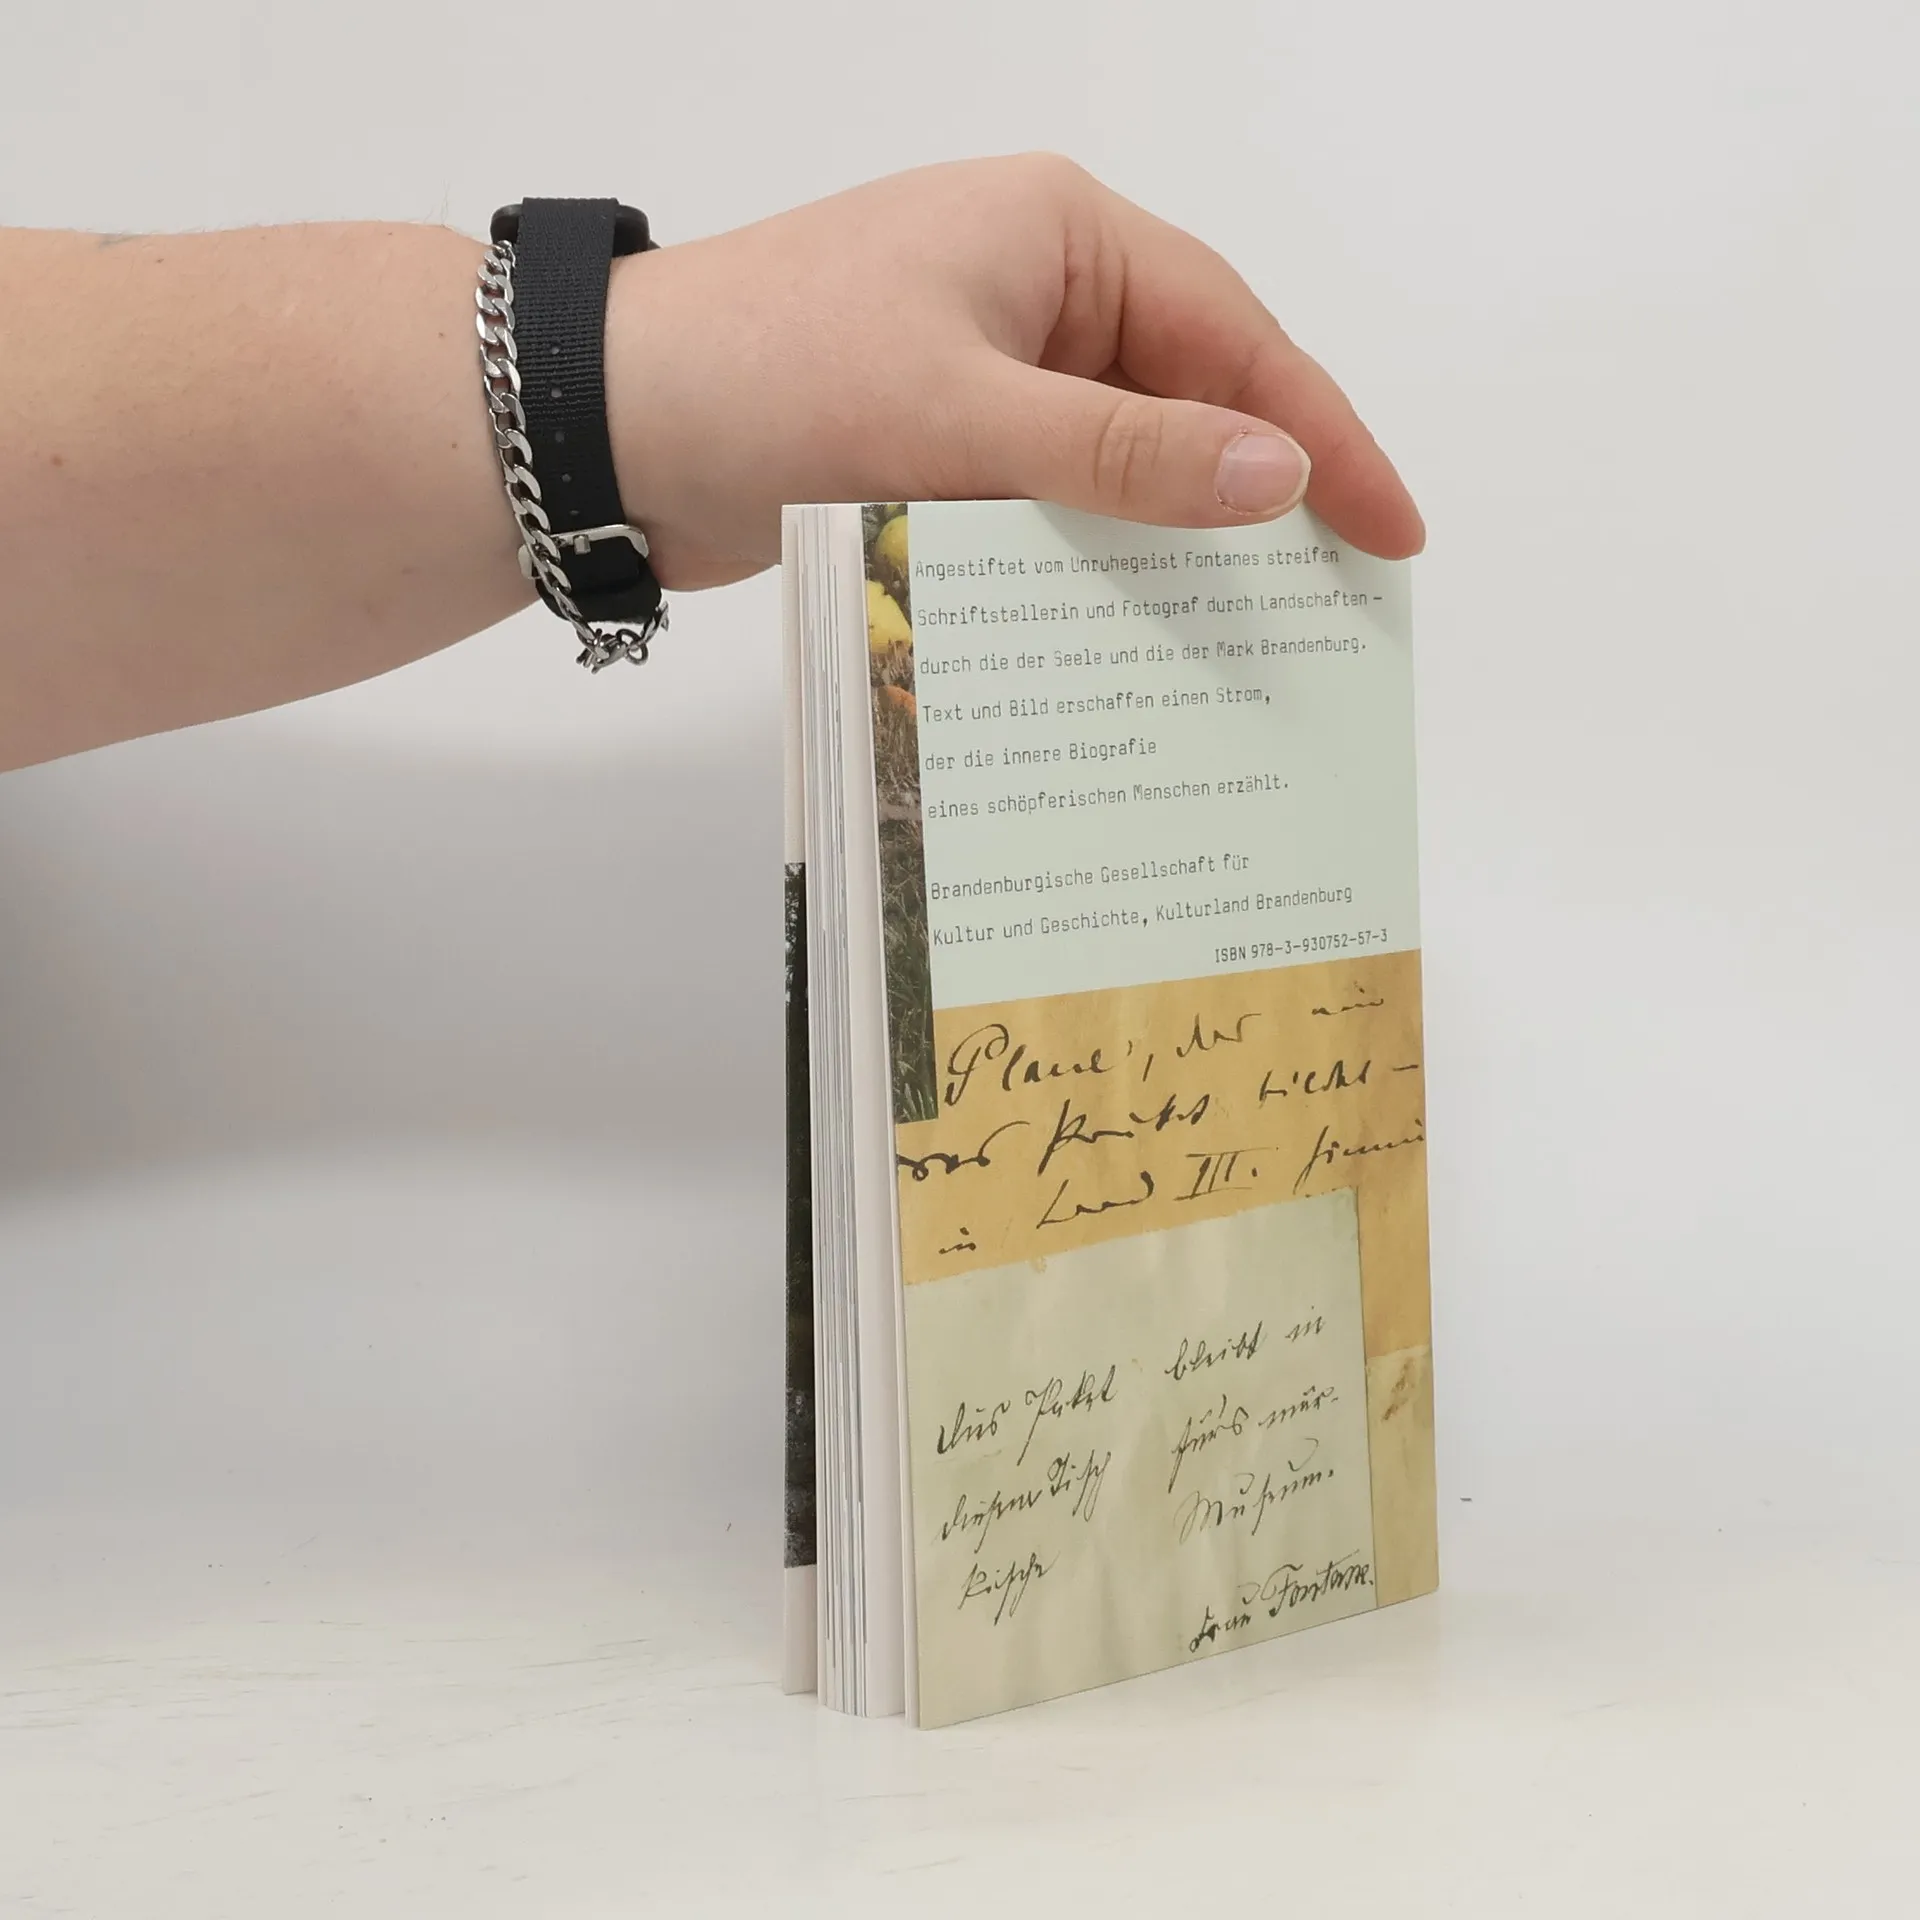 Angestiftet vom Unruhegeist Fontanes streifen
Schriftstellerin und Fotograf durch Landschaften –
durch die der Seele und die der Mark Brandenburg.
Text und Bild erschaffen einen Strom,
der die innere Biografie
eines schöpferischen Menschen erzählt.
Brandenburgische Gesellschaft für
Kultur und Geschichte, Kulturland Brandenburg
ISBN 978-3-930752-57-3
der
das
in Land III.
Das Paket bleibt in
diesem Tisch fürs mär-
kische Museum.
Frau Fontane.